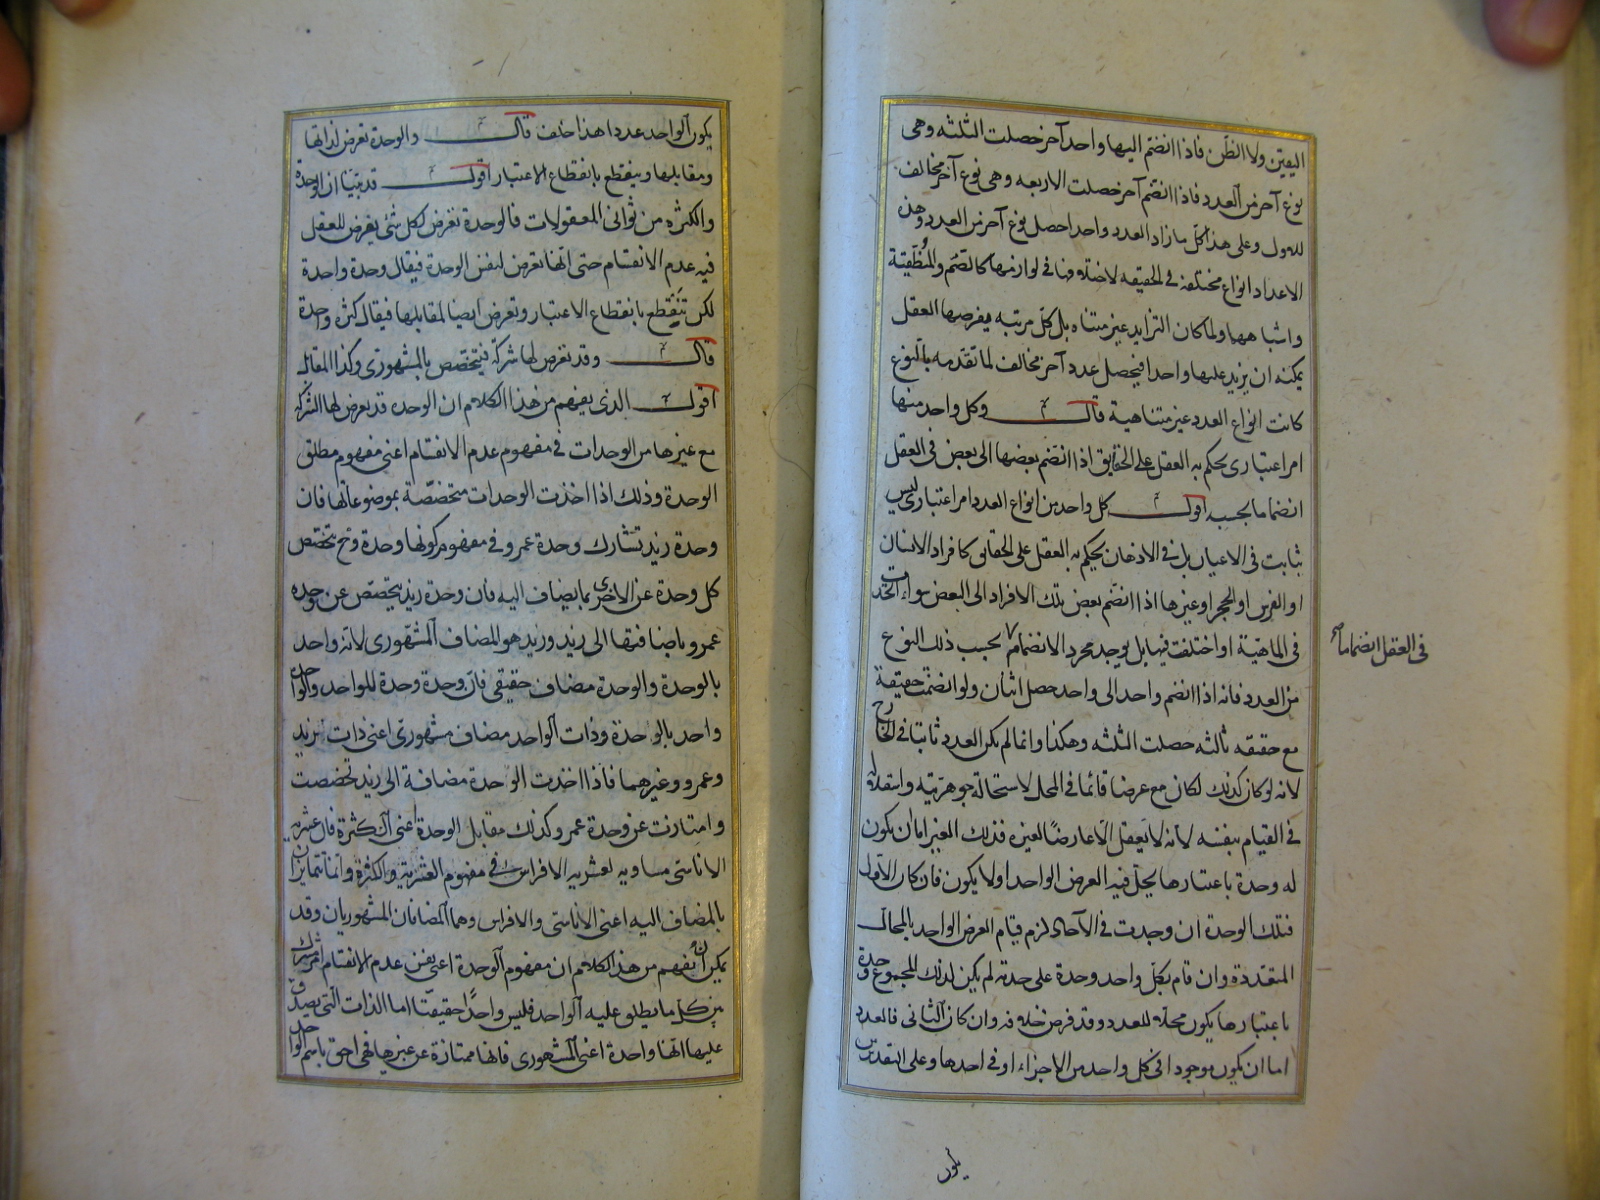 اليقين ولا الظن فاذا انضم اليها واحد آخر حصلت الثلثه وهى
نوع آخر من العدد فاذا انضم آخر حصلت الاربعه وهى نوع آخر مخالف
للاول وعلى هذا كل ما زاد العدد واحدا حصل نوع آخر من العدد وهذه
الاعداد انواع مختلفة فى الحقيقه لاختلافها فى لوازمها كالصمم والمنطقية
واشباهها ولما كان التزايد غير متناه بل كل مرتبه يفرضها العقل
يمكنه ان يزيد عليها واحدا فيحصل عدد آخر مخالف لما تقدمه بالنوع
كانت انواع العدد غير متناهية قال وكل واحد منها
امر اعتبارى يحكم به العقل على الحقايق اذا انضم بعضها الى بعض فى العقل
انضماما بحسبه اقول كل واحد من انواع العدد امر اعتبارى ليس
بثابت فى الاعيان بل فى الاذهان يحكم به العقل على الحقايق كافراد الانسان
او الفرس او الحجر او غيرها اذا انضم بعض تلك الافراد الى البعض سواء اتحدت
فى الماهية او اختلفت فيها بل يوجد مجرد الانضمام بحسب ذلك النوع
فى العقل انضماما
من العدد فانه اذا انضم واحد الى واحد حصل اثنان ولو انضمت حقيقة
مع حقيقه ثالثه حصلت الثلثه وهكذا وانما لم يكن العدد ثابتا فى الخارج
لانه لو كان كذلك لكان مع عرضا قائما فى المحل لاستحالة جوهريته واستقلاله
فى القيام بنفسه لانه لا يعقل الا عارضا لغيره فذلك الغير اما ان يكون
له وحدة باعتبارها يحل فيه العرض الواحد اولا يكون فان كان الاول
فتلك الوحدة ان وجدت فى الآحاد لزم قيام العرض الواحد بالمحال
المتعددة وان قام بكل واحد وحدة على حدة لم يكن لذلك المجموع وحدة
باعتبارها يكون محلا للعدد وقد فرض خلافه وان كان الثانى فالعدد
اما ان يكون موجودا فى كل واحد من الاجزاء او فى احدها وعلى التقديرين
يكون
يكون الواحد عددا هذا خلف قال والوحدة تعرض لذاتها
ومقابلها وينقطع بانقطاع الاعتبار اقول قد بينا ان الوحدة
والكثرة من ثوانى المعقولات فالوحدة تعرض لكل شئ يعرض للعقل
فيه عدم الانقسام حتى انها تعرض لنفس الوحدة فيقال وحدة واحدة
لكن تنقطع بانقطاع الاعتبار وتعرض ايضا لمقابلها فيقال كثرة واحدة
قال وقد تعرض لها شركة فيتخصص بالمشهورى وكذا المقابل
اقول الذى يفهم من هذا الكلام ان الوحدة قد يعرض لها الشركة
مع غيرها من الوحدات فى مفهوم عدم الانقسام اعنى مفهوم مطلق
الوحدة وذلك اذا اخذت الوحدات متخصصة بموضوعاتها فان
وحدة زيد تشارك وحدة عمرو فى مفهوم كونها وحدة وح تختص
كل وحدة عن الاخرى بما يضاف اليه فان وحدة زيد يتخصص عن وحدة
عمرو باضافتها الى زيد وزيد هو المضاف المشهورى لانه واحد
بالوحدة والوحدة مضاف حقيقى فان وحدة وحدة للواحد والواحد
واحد بالوحدة وذات الواحد مضاف مشهورى اعنى ذات زيد
وعمرو وغيرهما فاذا اخذت الوحدة مضافة الى زيد تخصصت
وامتازت عن وحدة عمرو وكذلك مقابل الوحدة اعنى الكثرة فان عشرية
الاناسى مساويه لعشريه الافراس فى مفهوم العشرية والكثرة وانما تتمايزان
بالمضاف اليه اعنى الاناسى والافراس وهما المضافان المشهوريان وقد
يمكن ان يفهم من هذا الكلام ان مفهوم الوحدة اعنى نفس عدم الانقسام امر مشترك
بين كل ما يطلق عليه الواحد فليس واحدا حقيقيا اما الذات التى يصدق
عليها انها واحدة اعنى المشهورى فانها ممتازة عن غيرها فهى احق باسم الواحد